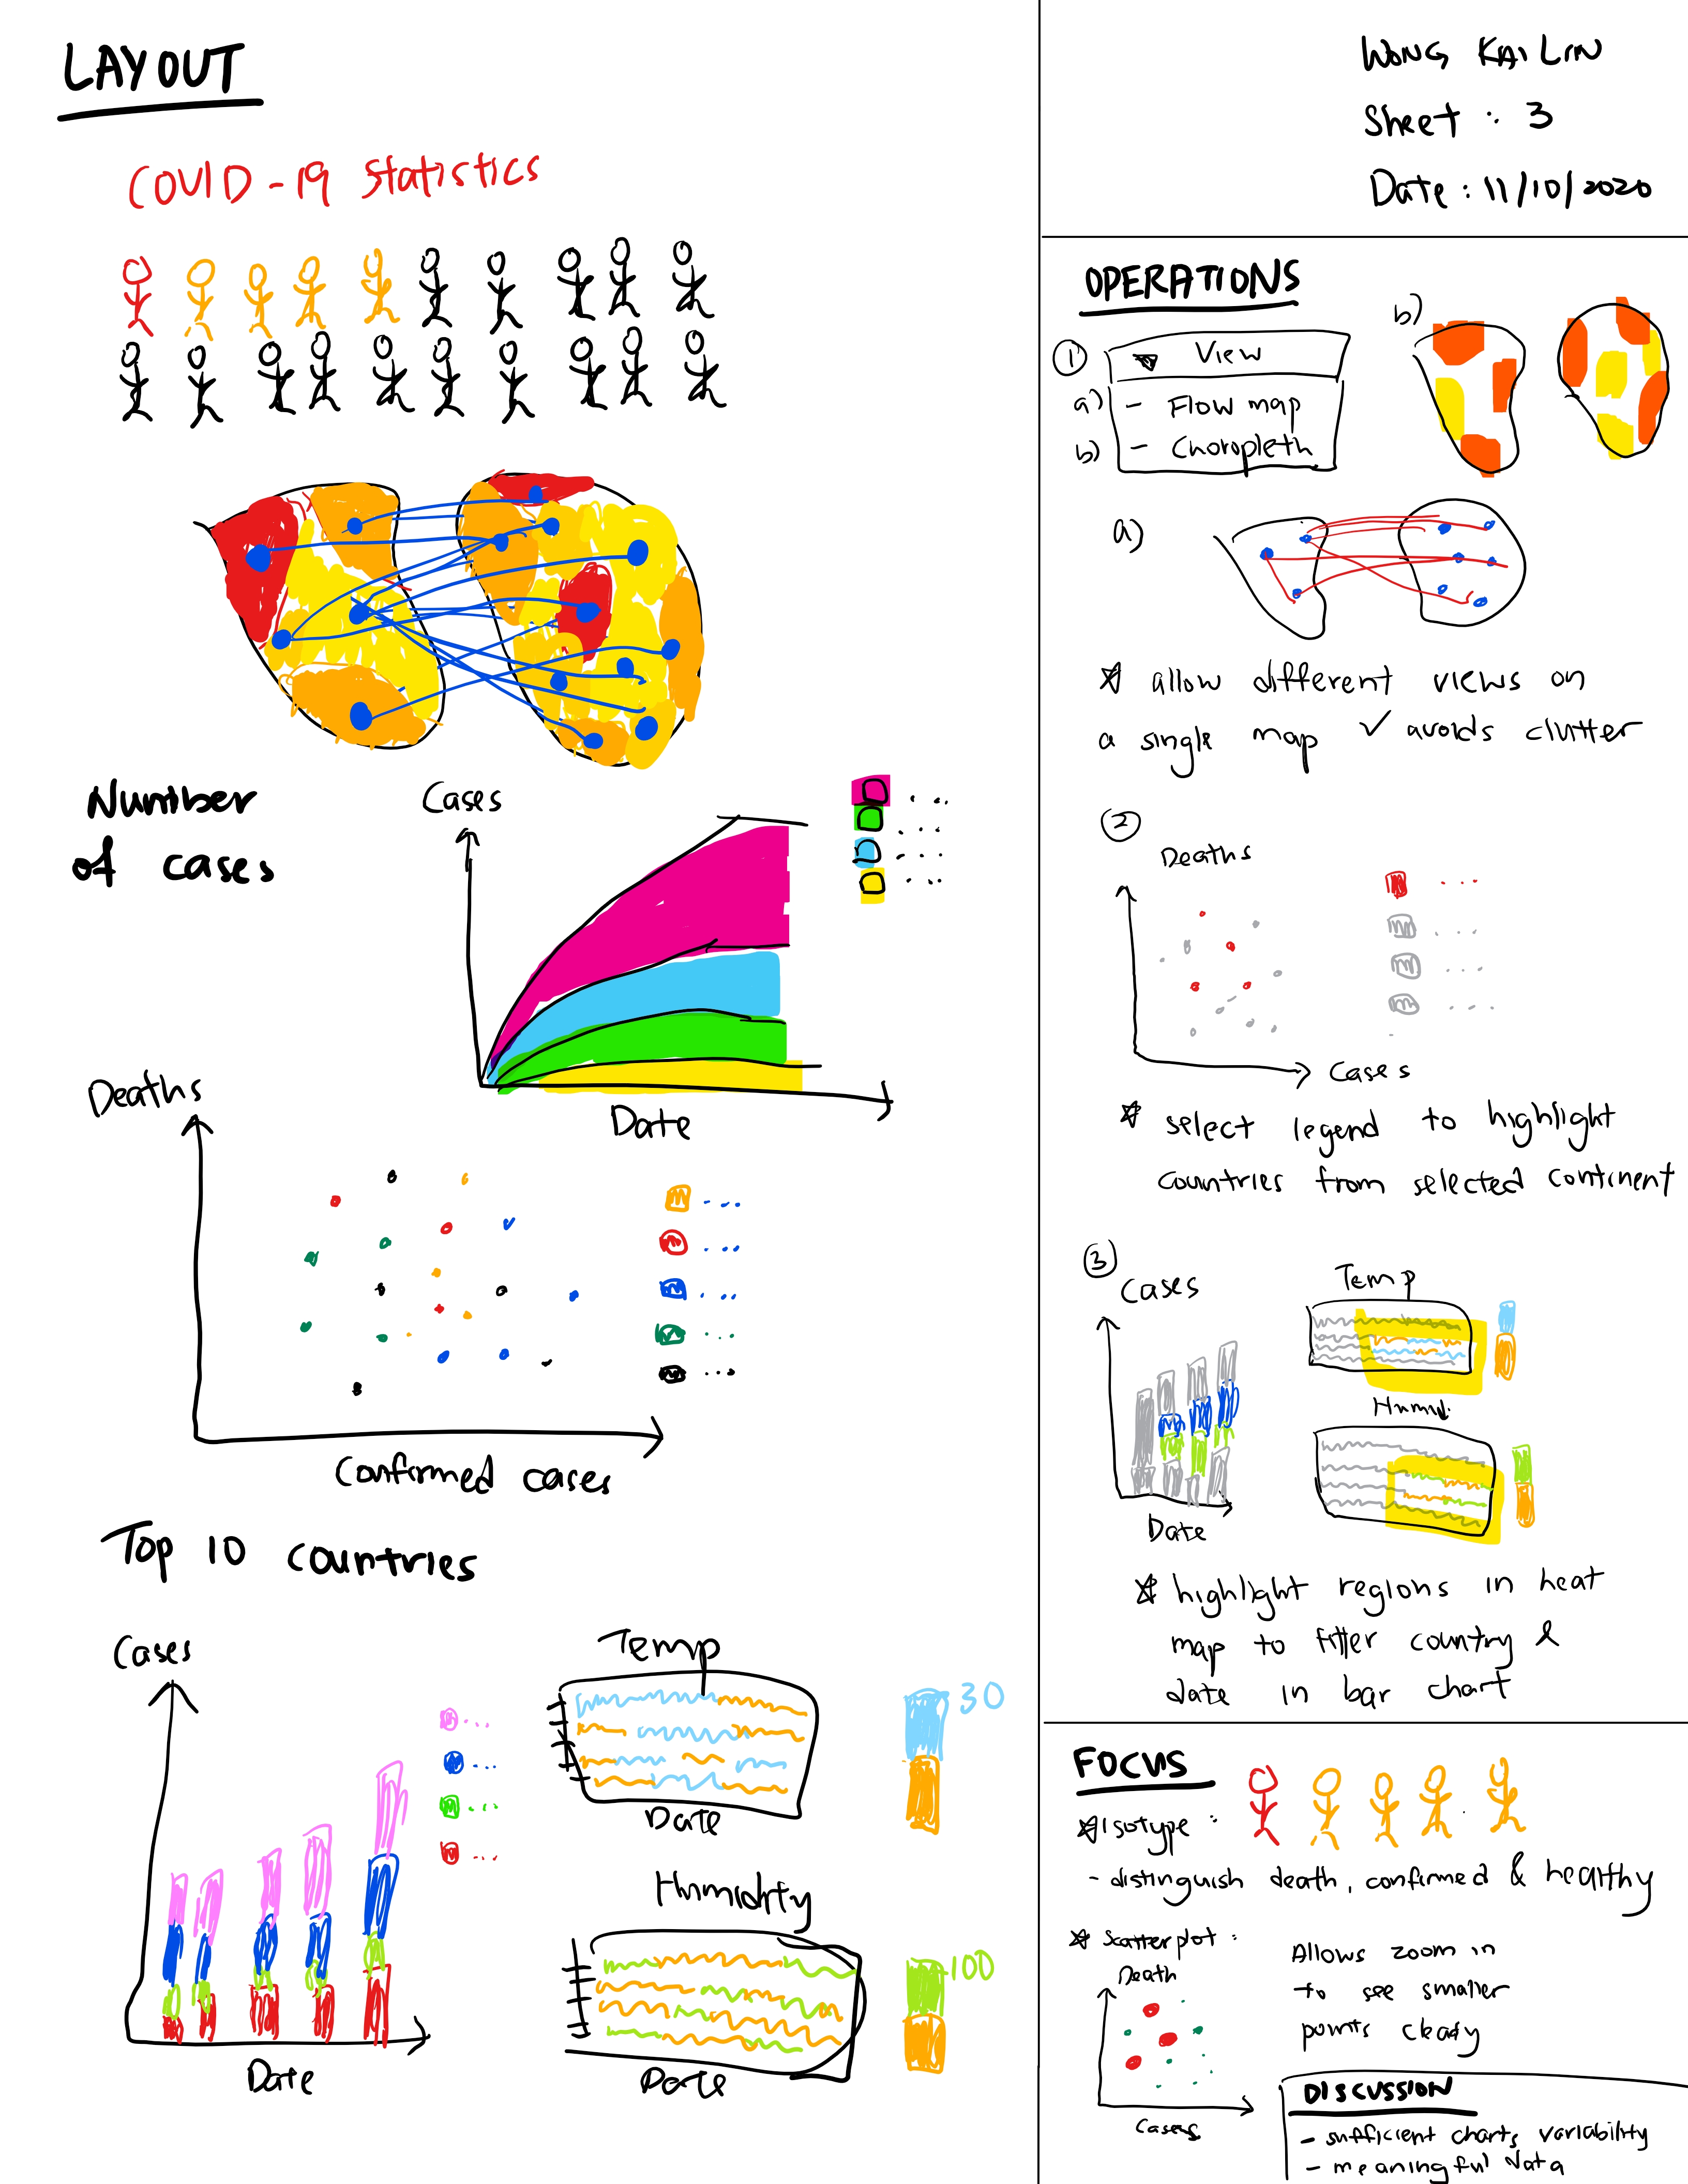 LAYOUT
COVID-19 statistics
Number
of cases
Cases
Date
Deaths
Confirmed cases
Top 10 countries
Cases
Date
Temp
30
Date
Humidity
100
Date
WONG KAI LIN
Sheet : 3
Date : 11/10/2020
OPERATIONS
1 View
a) - Flow map
b) - Choropleth
b)
a)
* allow different views on
a single map ✓ avoids clutter
2
Deaths
Cases
* select legend to highlight
countries from selected continent
3
Cases
Date
Temp
Humid.
* highlight regions in heat
map to filter country &
date in bar chart
FOCUS
* Isotype :
- distinguish death, confirmed & healthy
* Scatterplot :
Death
Cases
Allows zoom in
to see smaller
points clearly
DISCUSSION
- sufficient charts variability
- meaningful data